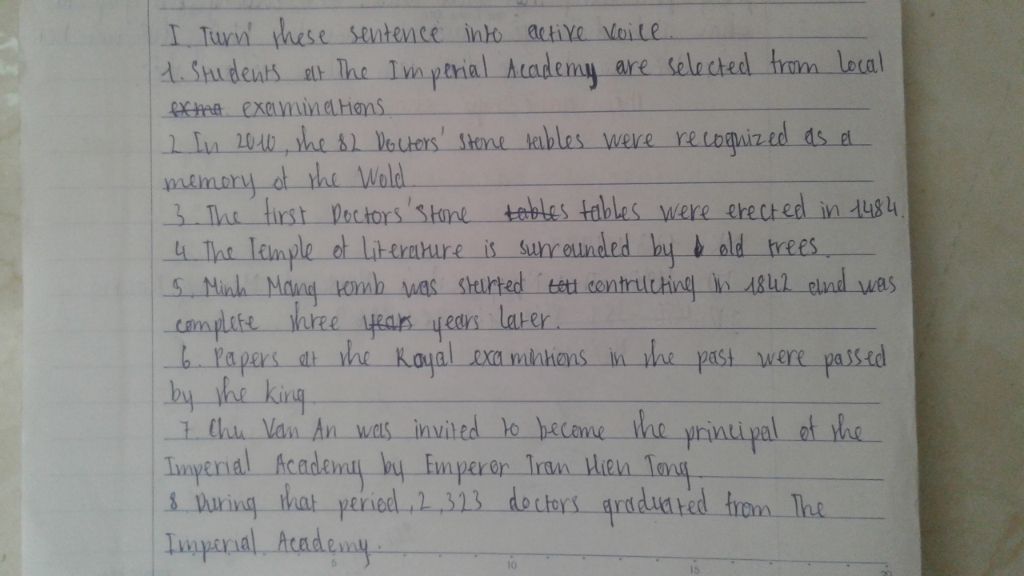 I. Turn these sentence into active voice.
1. Students at The Imperial Academy are selected from local
exma examinations
2 In 2010, the 82 Doctors' stone tables were recognized as a
memory of the Wold
3. The first Doctors' stone tables tables were erected in 1484.
4. The Temple of literature is surrounded by old trees.
5. Minh Mang tomb was started contructing in 1842 and was
complete three years years later.
6. Papers at the Royal examintions in the past were passed
by the king
7. Chu Van An was invited to become the principal of the
Imperial Academy by Emperor Tran Hien Tong
8. During that period, 2,323 doctors graduated from The
Imperial Academy.
5 10 15 20